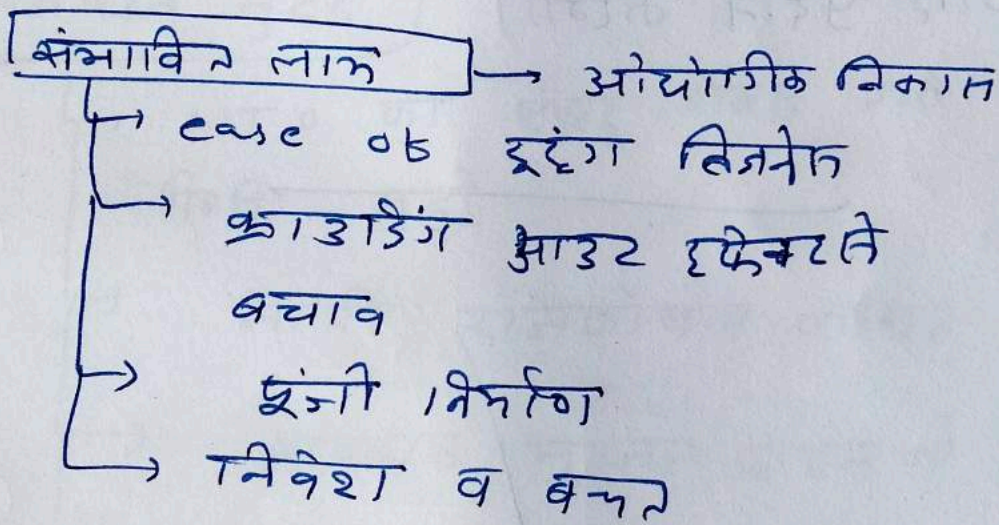 संभावित लाभ → औद्योगिक विकास
→ ease of डूइंग बिजनेस
→ क्राउडिंग आउट इफेक्ट से
बचाव
→ पूंजी निर्माण
→ निवेश व बचत